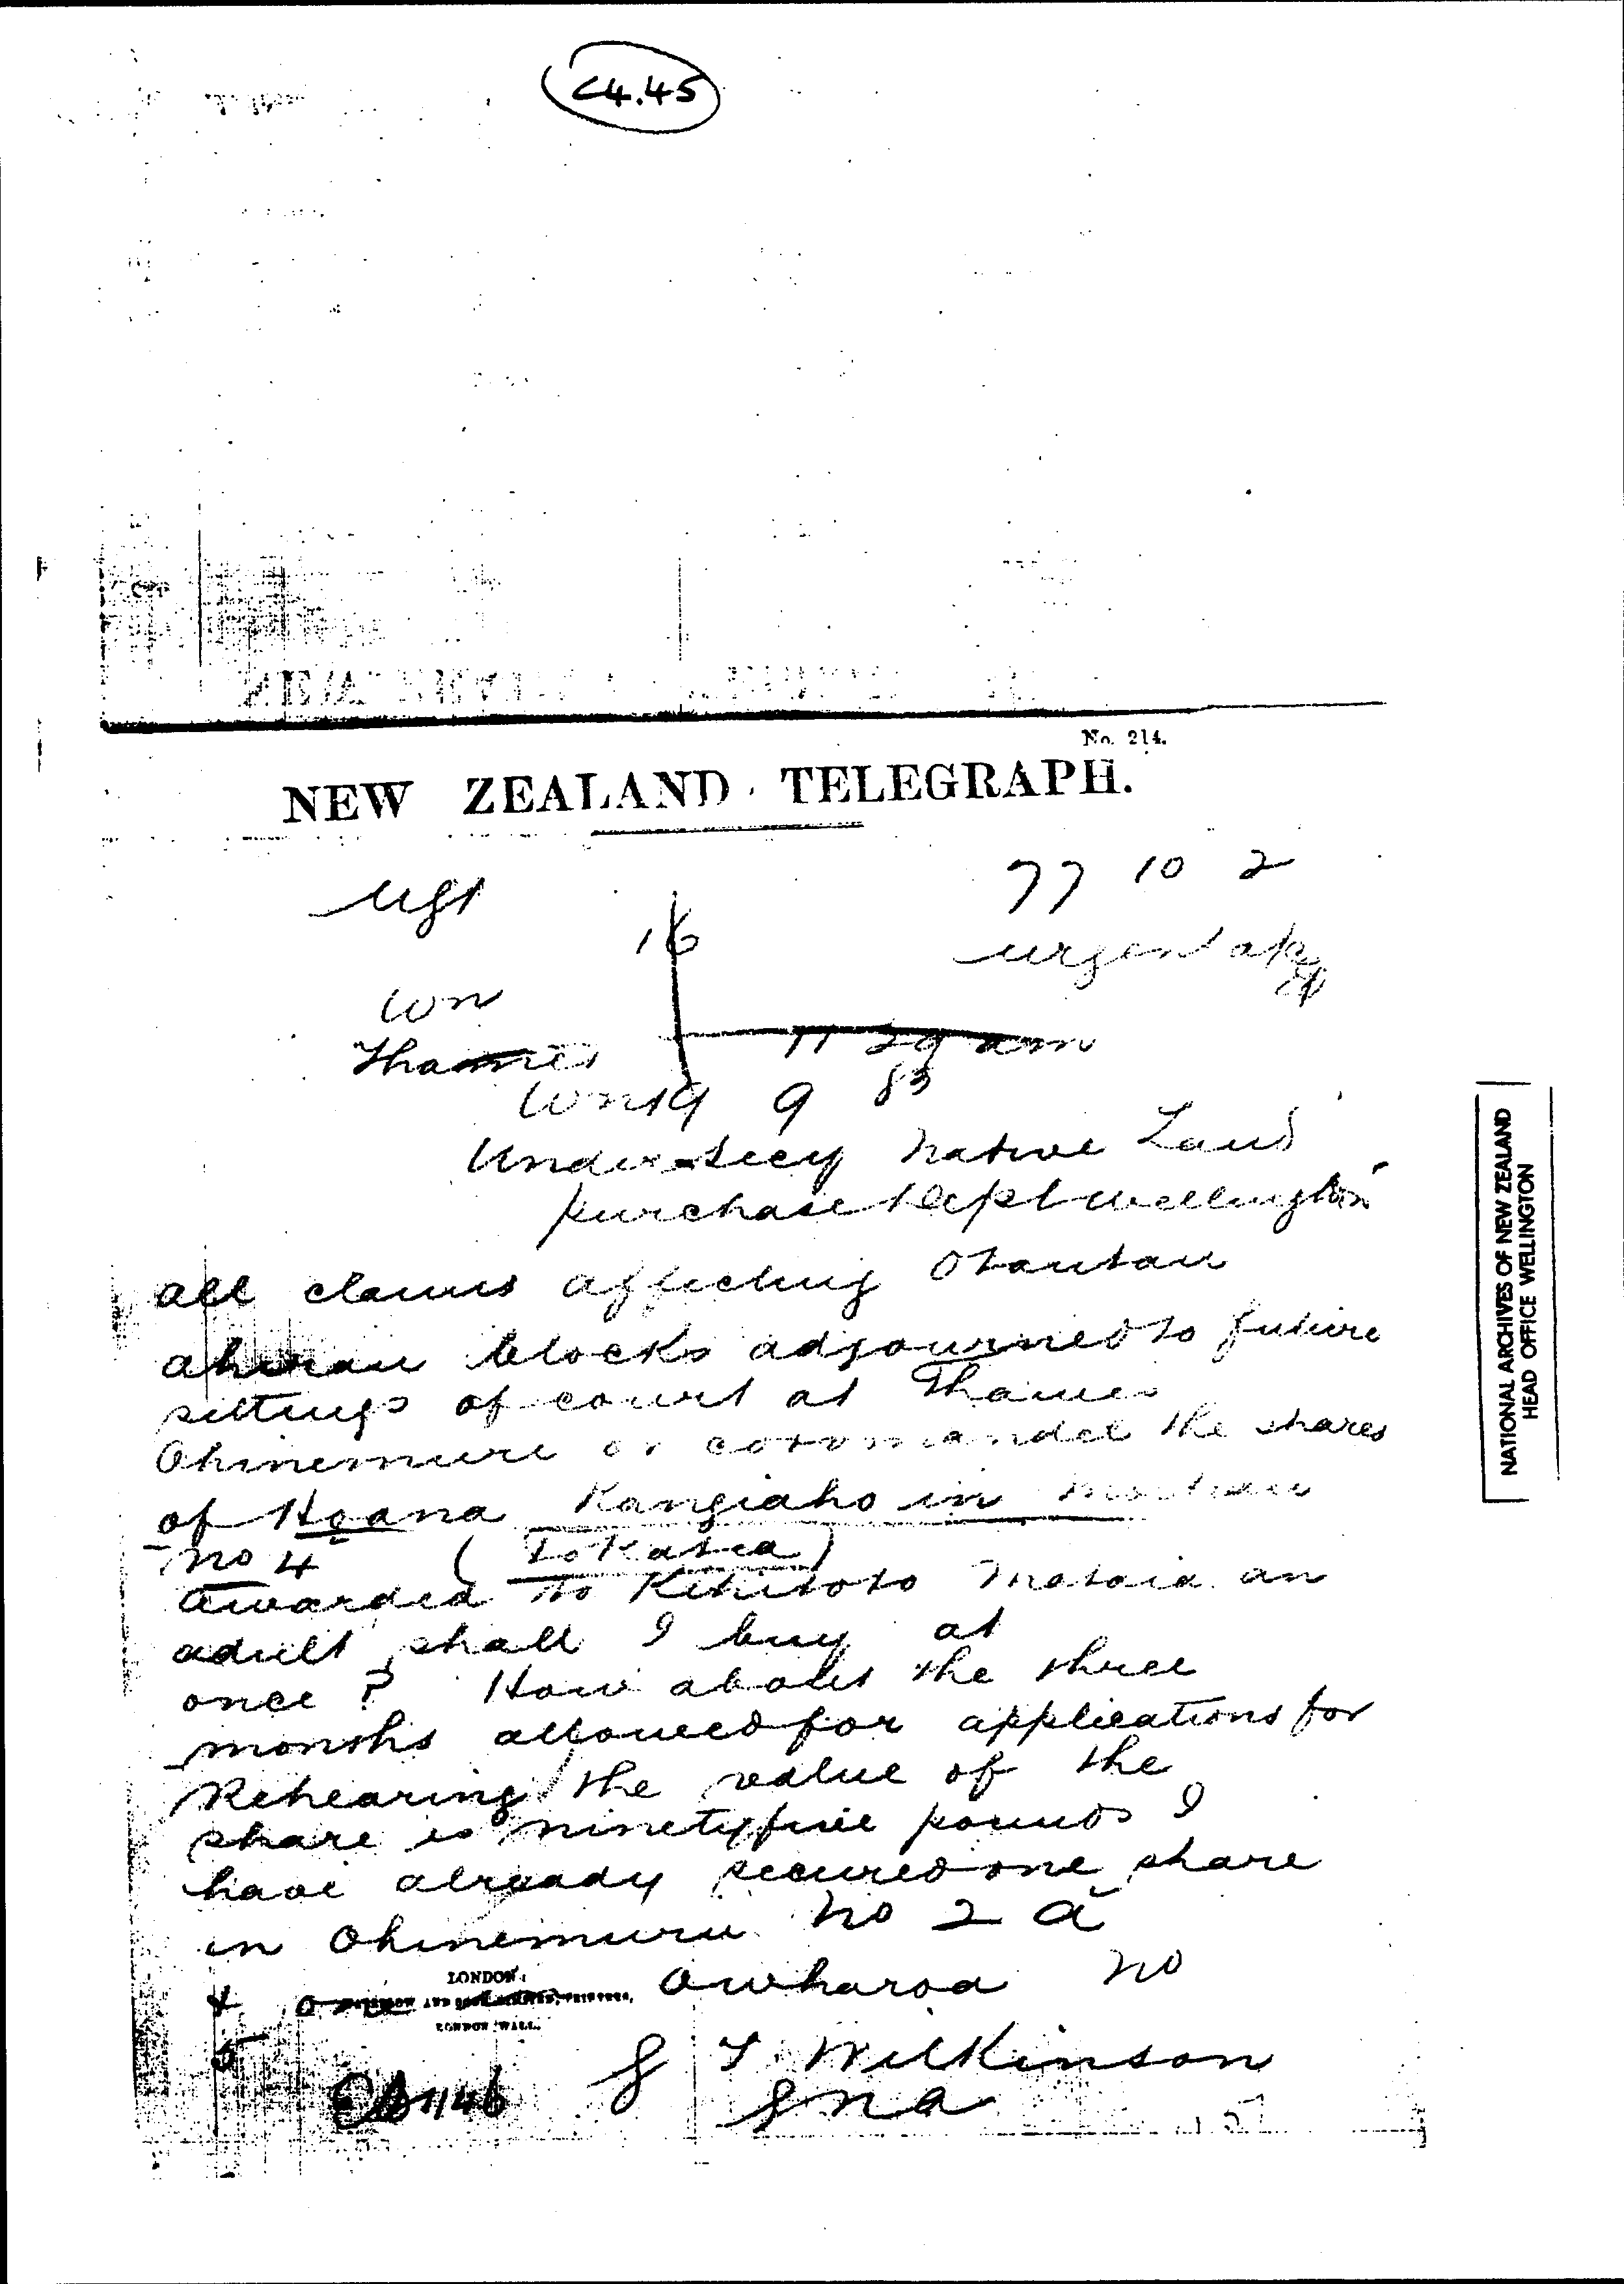 C4.45
No. 214.
NEW ZEALAND TELEGRAPH.
ugt
77 10 2
16
urgent
wn
Thames
11 29 am
Wn 19 9 83
Under Secy Native Land
purchase Dept Wellington
all claims affecting Otautau
blocks adjourned to future
sittings of court at Thames
Ohinemuri or coromandel the shares
of Hoana Rangiaho in
No 4 (Tokatea)
awarded to Kehitoto Mataia an
adult shall I buy at
once? How about the three
months allowed for applications for
Rehearing the value of the
share is ninetyfive pounds I
have already secured one share
in Ohinemuri No 2 a
& one Owharoa No
5
LONDON:
LONDON WALL.
G T Wilkinson
1146
NATIONAL ARCHIVES OF NEW ZEALAND
HEAD OFFICE WELLINGTON